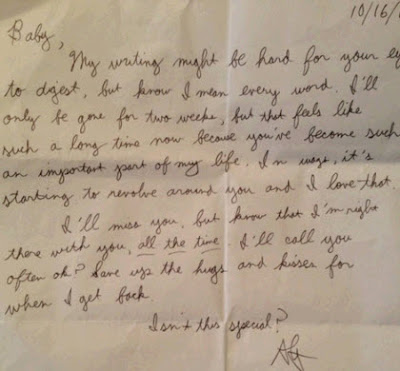 10/16/
Baby,
My writing might be hard for your ey
to digest, but know I mean every word. I'll
only be gone for two weeks, but that feels like
such a long time now because you've become such
an important part of my life. In ways, it's
starting to revolve around you and I love that.
I'll miss you, but know that I'm right
there with you, all the time. I'll call you
often ok? Save up the hugs and kisses for
when I get back
Isn't this special?